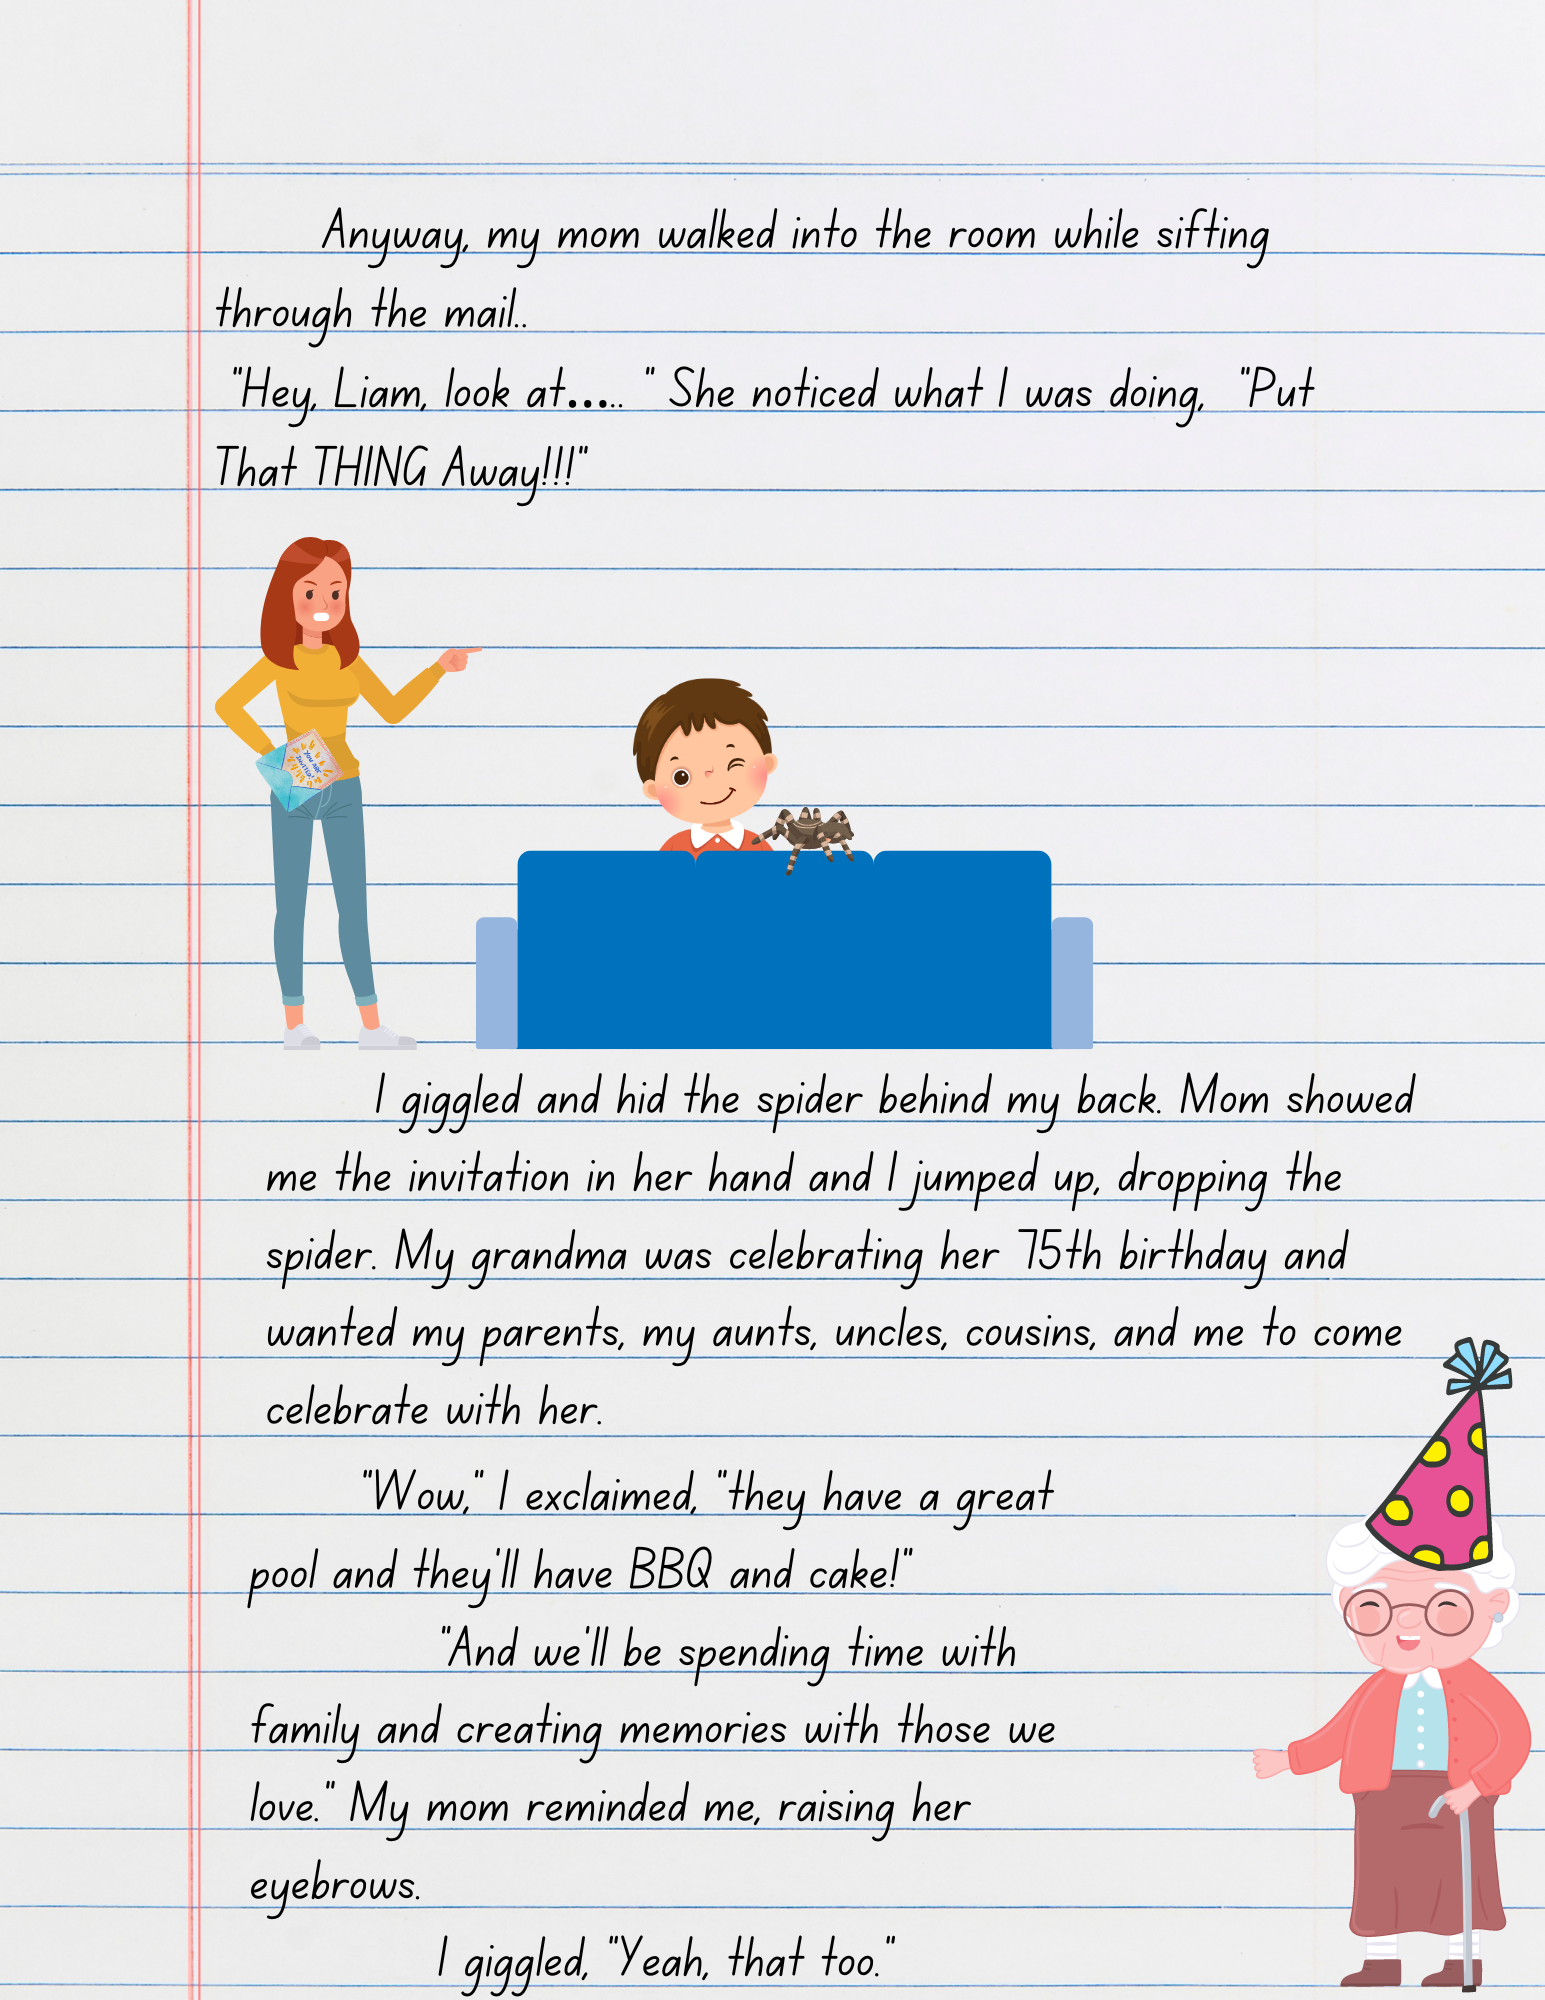 Anyway, my mom walked into the room while sifting
through the mail..
"Hey, Liam, look at..... " She noticed what I was doing, "Put
That THING Away!!!"
YOU ARE
INVITED!
I giggled and hid the spider behind my back. Mom showed
me the invitation in her hand and I jumped up, dropping the
spider. My grandma was celebrating her 75th birthday and
wanted my parents, my aunts, uncles, cousins, and me to come
celebrate with her.
"Wow," I exclaimed, "they have a great
pool and they'll have BBQ and cake!"
"And we'll be spending time with
family and creating memories with those we
love." My mom reminded me, raising her
eyebrows.
I giggled, "Yeah, that too."